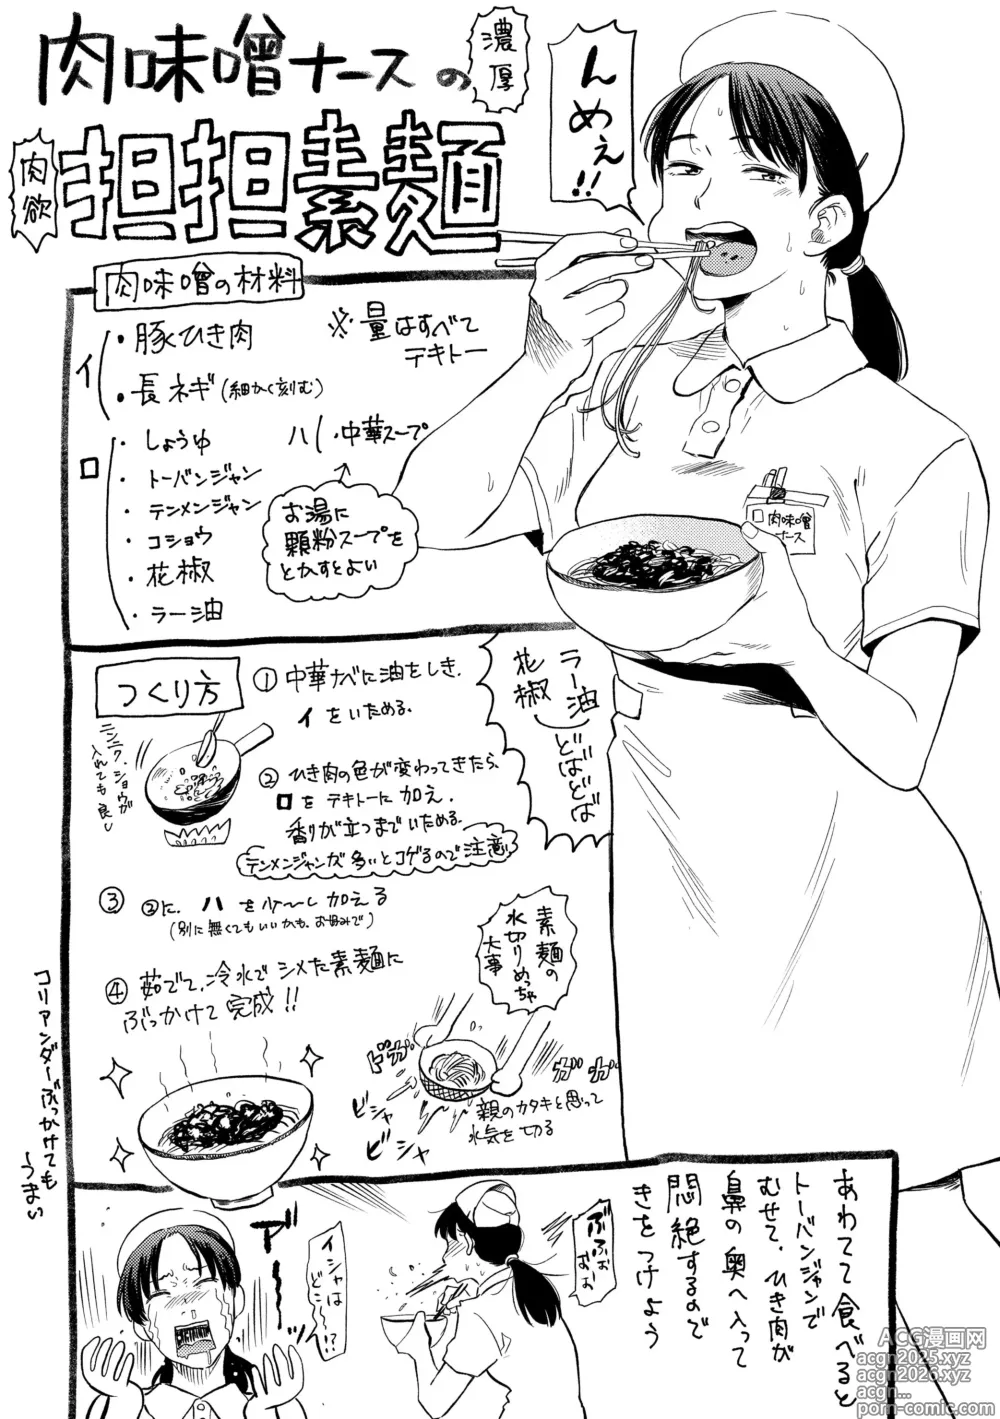 肉味噌ナースの
濃厚
肉欲
担担素麺
んめぇ!!
肉味噌の材料
イ
・豚ひき肉
・長ネギ(細かく刻む)
※量はすべて
テキトー
ロ
・しょうゆ
・トーバンジャン
・テンメンジャン
・コショウ
・花椒
・ラー油
ハ
・中華スープ
お湯に
顆粉スープを
とかすとよい
肉味噌
ナース
つくり方
①中華ナベに油をしき、
イをいためる。
ニンニク、ショウガ
入れても良し
②ひき肉の色が変わってきたら、
ロをテキトーに加え、
香りが立つまでいためる。
テンメンジャンが多いとコゲるので注意
ラー油
花椒
どばどば
③②に、ハを少〜し加える
(別に無くてもいいかも、お好みで)
④茹でて、冷水でシメた素麺に
ぶっかけて完成!!
素麺の
水切りめっちゃ
大事
ドガ
ガガガ
ビシャ
ビシャ
親のカタキと思って
水気を切る
コリアンダーぶっかけても
〜うまい
あわてて食べると
トーバンジャンで
むせて、ひき肉が
鼻の奥へ入って
悶絶するので
きをつけよう
ぶふぉ
ぉぉ
イシャは
どこ〜!?
ACG漫画网
acgn2025.xyz
acgn2026.xyz
acgn...
porn-comic.com